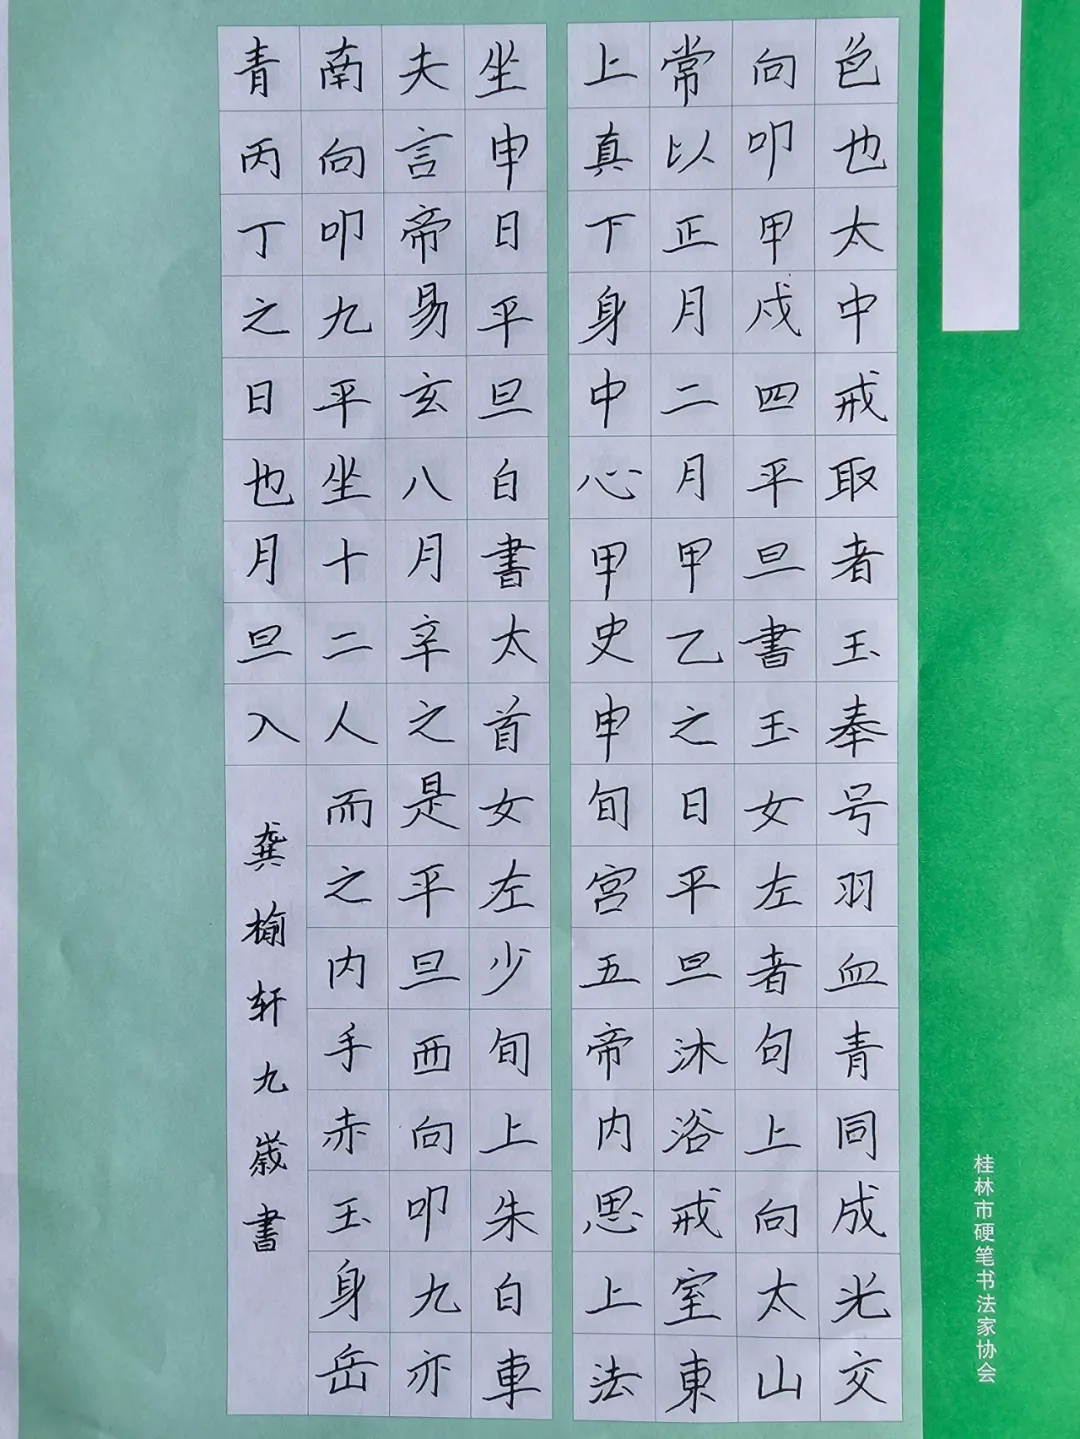 色也太中戒取者玉奉号羽血青同成光交
向叩甲戍四平旦書玉女左者句上向太山
常以正月二月甲乙之日平旦沐浴戒室東
上真下身中心甲史申旬宫五帝内思上法
坐申日平旦白書太首女左少旬上朱白車
夫言帝易玄八月辛之是平旦西向叩九亦
南向叩九平坐十二人而之内手赤玉身岳
青丙丁之日也月旦入
龚榆轩九歲書
桂林市硬笔书法家协会